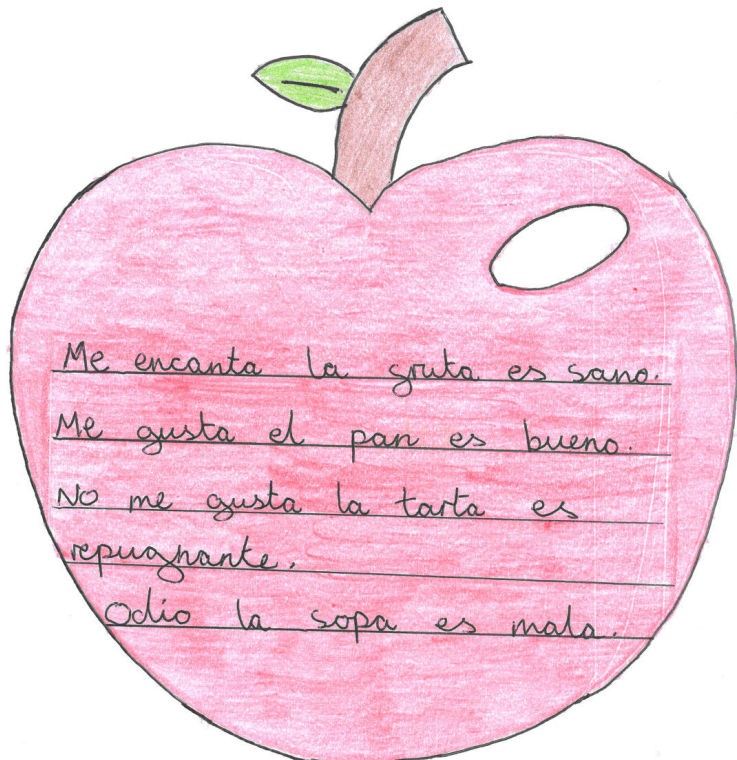 Me encanta la fruta es sano.
Me gusta el pan es bueno.
No me gusta la tarta es
repugnante.
Odio la sopa es mala.